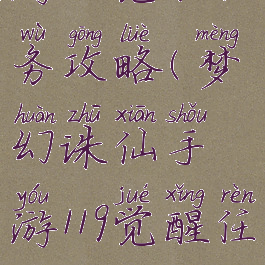 wù gōng lüè mèng
务攻略(梦
huàn zhū xiān shǒu
幻诛仙手
yóu jué xǐng rèn
游119觉醒任